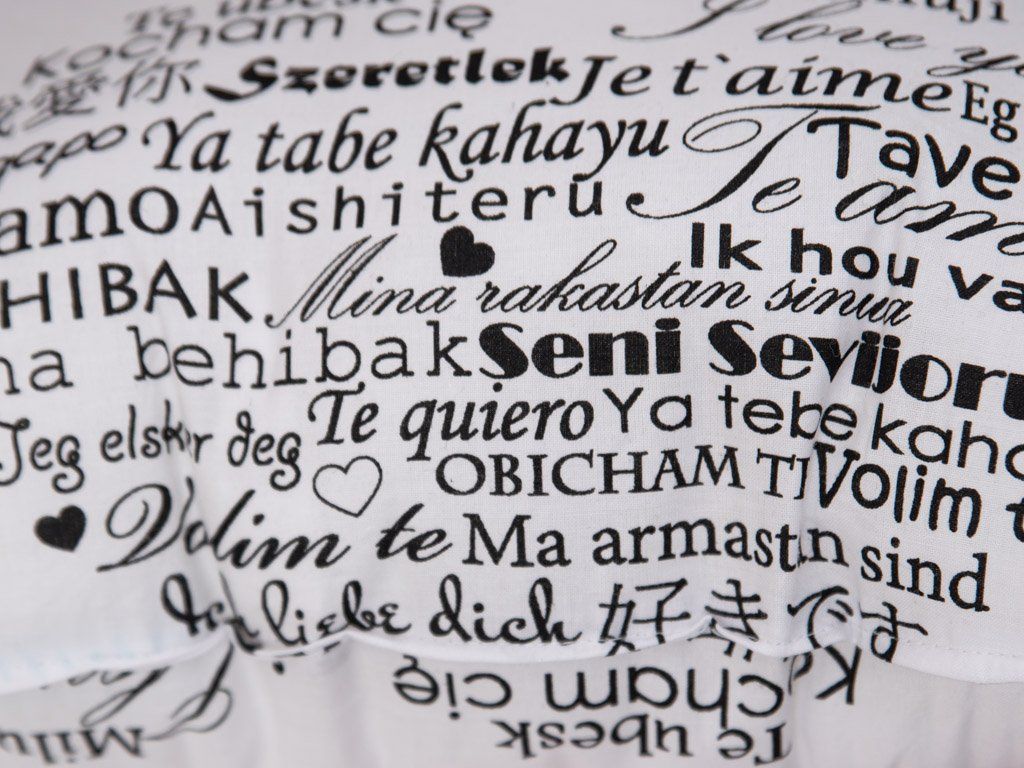 Te ubesk
Kocham cię
I love
我愛你 Szeretlek Je t`aime Eg
Ya tabe kahayu Te am Tave
amo Aishiteru
HIBAK Mina rakastan sinua Ik hou va
behibak Seni Sevijoru
Jeg elsker deg Te quiero Ya tebe kaha
OBICHAM TI Volim t
Volim te Ma armastan sind
Ich liebe dich 好きです
Kocham cię
Te ubesk
Milu